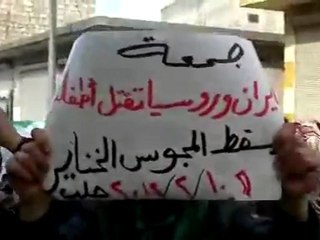 جمعة
إيران وروسيا تقتل أطفالنا
يسقط المجوس الخنازير
٢٠١٢/٢/١٠ حلب